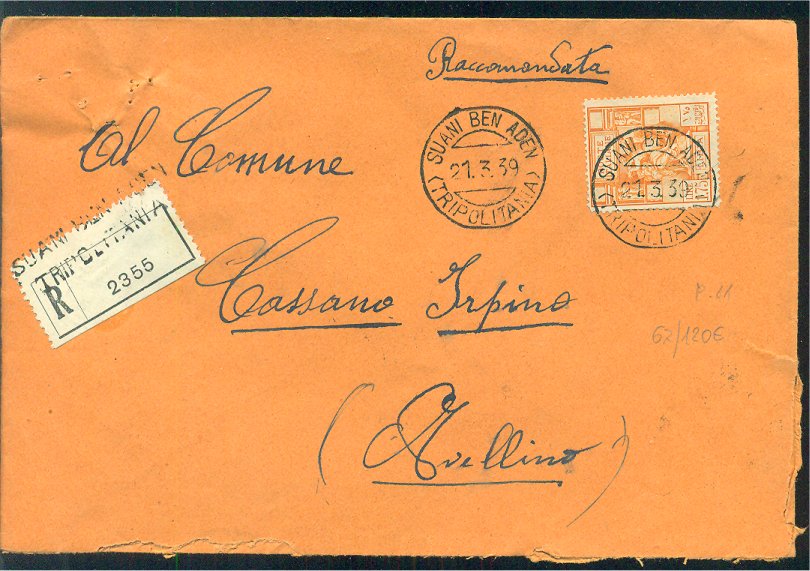 Raccomandata
SUANI BEN ADEN
21.3.39
(TRIPOLITANIA)
SUANI BEN ADEN
21.3.39
(TRIPOLITANIA)
Al Comune
SUANI BEN ADEN
TRIPOLITANIA
R 2355
Cassano Irpino
P. 11
62/120€
(Avellino)